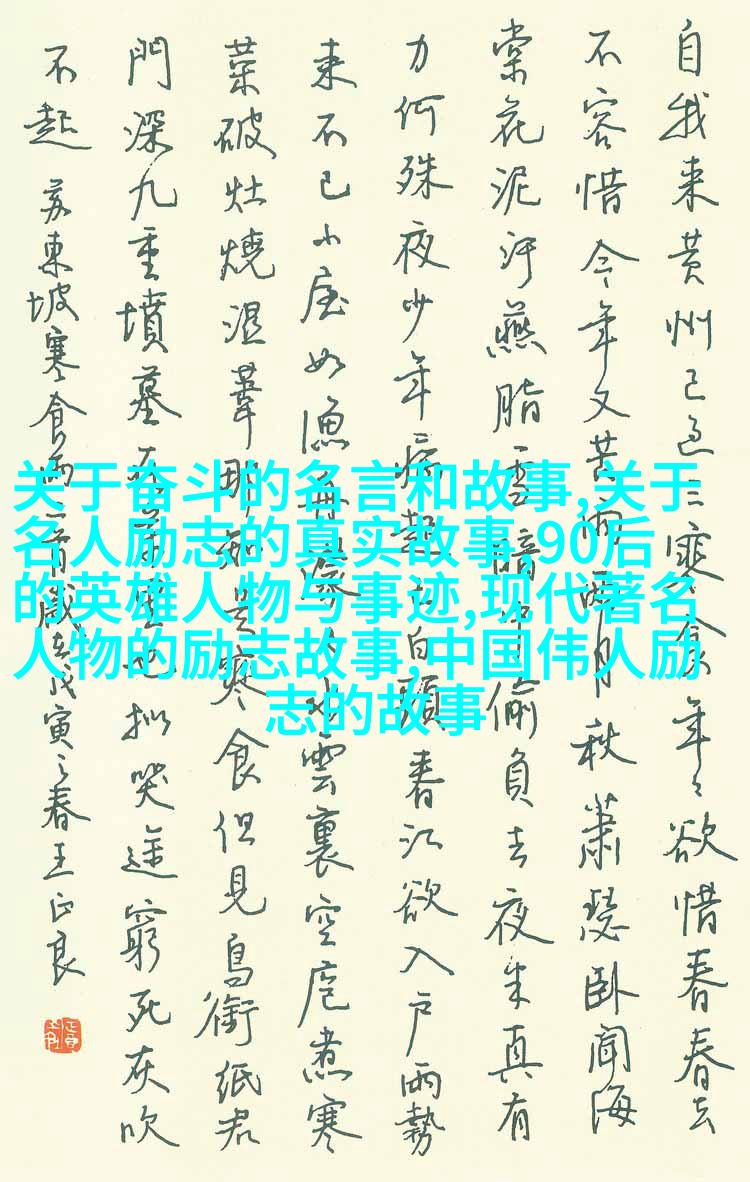 自我来黄州已過三寒食年々欲惜春春去
不容惜今年又苦雨兩月秋蕭瑟卧聞海
棠花泥汙燕脂雪暗中偷負去夜半真有
力何殊夜少年病起已白頭春江欲入户雨勢
来不已小屋如漁舟濛々水雲裏空庖煮寒
菜破灶燒湿葦那知是寒食但見烏銜纸君
門深九重墳墓在萬里也拟哭途窮死灰吹
不起 苏東坡寒食雨二首 歲在戊寅之春王正良
关于奋斗的名言和故事,关于
名人励志的真实故事,90后
的英雄人物与事迹,现代著名
人物的励志故事,中国伟人励
志的故事